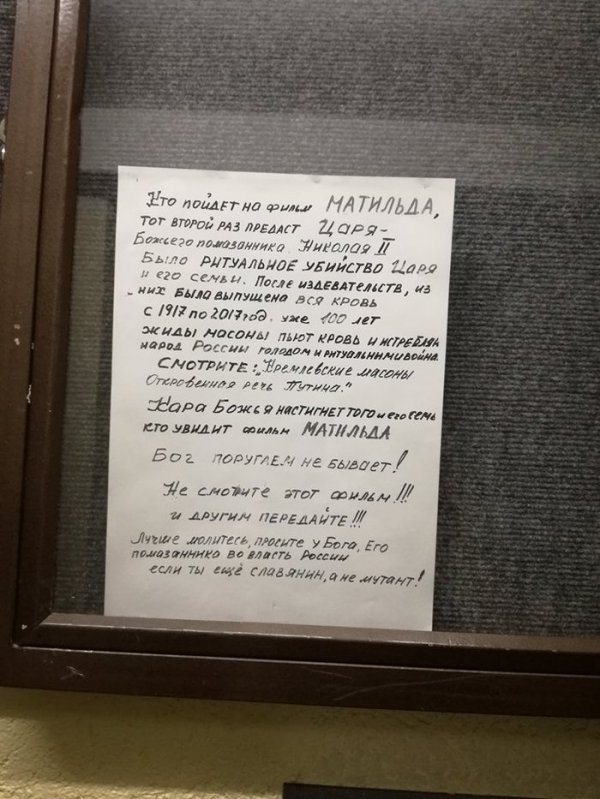 Кто пойдет на фильм МАТИЛЬДА,
тот второй раз предаст Царя-
Божьего помазанника Николая II
Было РИТУАЛЬНОЕ УБИЙСТВО Царя
и его семьи. После издевательств, из
них была выпущена вся кровь
с 1917 по 2017 год. уже 100 лет
жиды масоны пьют кровь и истребляя
народ России голодом и ритуальними война
Смотрите: „Кремлевские масоны
Откровенная речь Путина."
Кара Божья настигнет того и его семь
кто увидит фильм МАТИЛЬДА
Бог поругаем не бывает!
Не смотите этот фильм!!!
и другим передайте!!!
Лучше молитесь, просите у Бога, Его
помазанника во власть России
если ты ещё славянин, а не мутант!